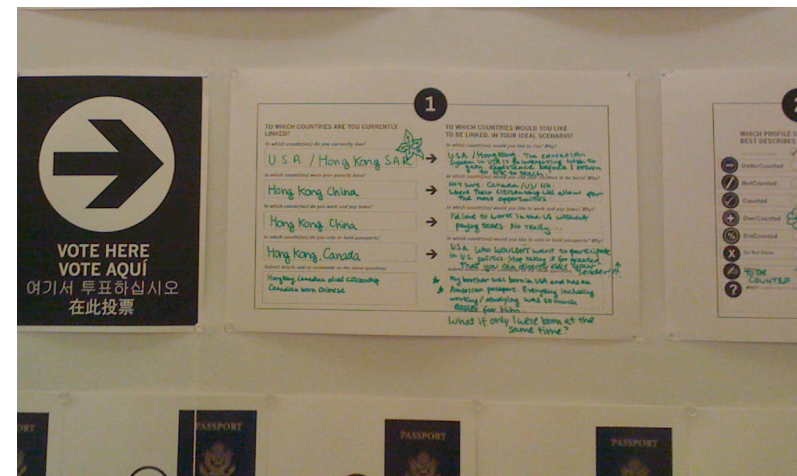 VOTE HERE
VOTE AQUÍ
여기서 투표하십시오
在此投票
1
TO WHICH COUNTRIES ARE YOU CURRENTLY
LINKED?
In which countr(ies) do you currently live?
USA / Hong Kong SAR
In which countr(ies) were your parents born?
Hong Kong China
In which countr(ies) do you work and pay taxes?
Hong Kong China
In which countr(ies) do you vote or hold passports?
Hong Kong, Canada
Hong Kong, Canadian dual citizenship
Canadian born Chinese
TO WHICH COUNTRIES WOULD YOU LIKE
TO BE LINKED, IN YOUR IDEAL SCENARIO?
In which countr(ies) would you like to live? Why?
USA / Hong Kong. The education
system in USA is
gain experience before I return
to HK to teach.
Not sure. Canada / US / HK.
Where their citizenship will allow for
the most opportunities.
In which countr(ies) would you like to work and pay taxes? Why?
I'd love to work in the US without
paying taxes. No really...
In which countr(ies) would you like to vote or hold passports? Why?
USA. Who wouldn't want to participate
in U.S. politics. Stop taking it for granted
That you can your
My brother was born in USA and has an
American passport. Everything including
working / studying was so much
easier for him.
What if only I were born at the
same time?
2
WHICH PROFILE
BEST DESCRIBES
UnderCounted
NotCounted
Counted
OverCounted
DisCounted
Do Not Know
COUNTED
PASSPORT
PASSPORT
PASSPORT